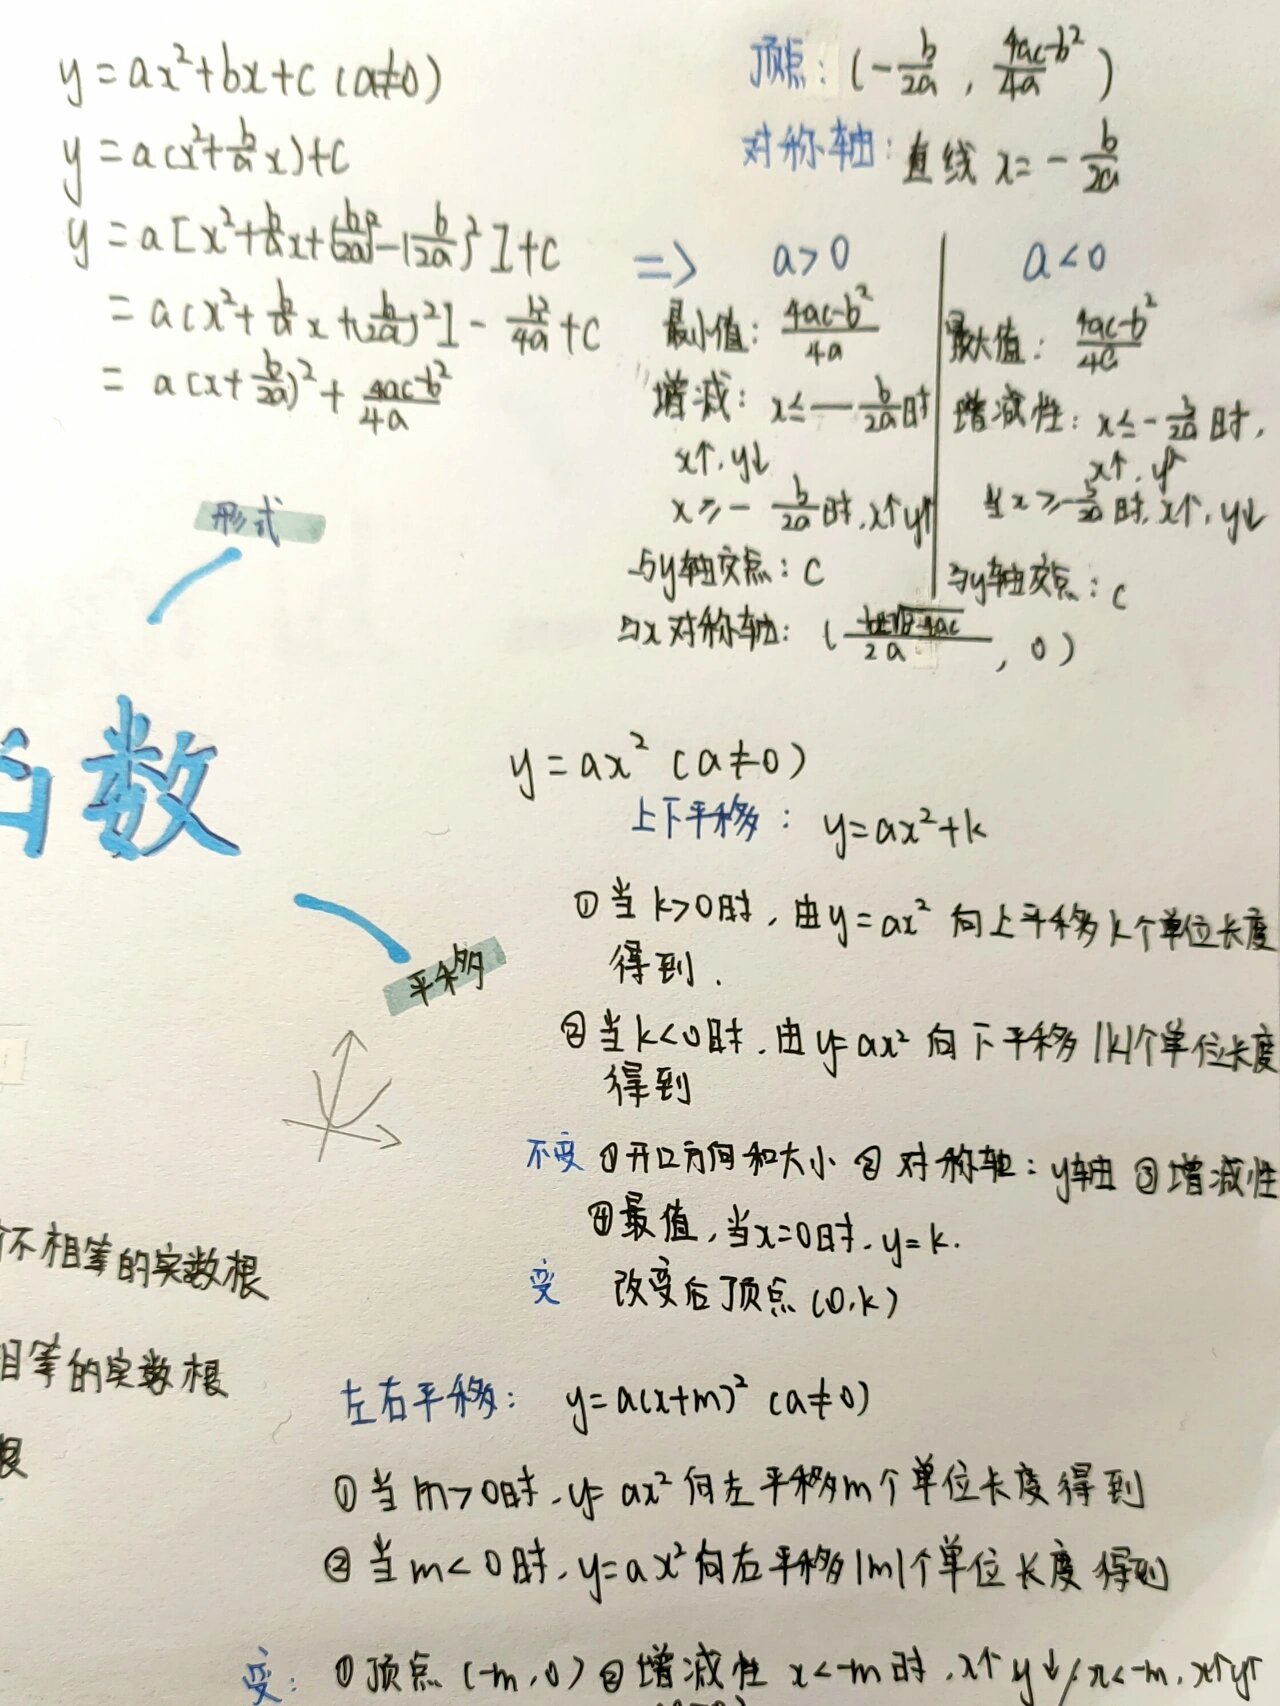 y=ax²+bx+c (a≠0)
y=a(x²+b/a x)+c
y=a[x²+b/a x+(b/2a)²-(b/2a)²]+c
=a(x²+b/a x+(b/2a)²]-b²/4a+c
=a(x+b/2a)²+4ac-b²/4a
顶点：(-b/2a，4ac-b²/4a)
对称轴：直线 x=-b/2a
=> a>0
最小值：4ac-b²/4a
增减：x≤-b/2a时
x↑，y↓
x≥-b/2a时，x↑y↑
与y轴交点：c
与x对称轴：(-b±√b²-4ac/2a，0)
a<0
最大值：4ac-b²/4a
增减性：x≤-b/2a时，
x↑，y↑
当x≥-b/2a时，x↑，y↓
与y轴交点：c
形式
数
平移
y=ax² (a≠0)
上下平移：y=ax²+k
①当k>0时，由y=ax²向上平移k个单位长度
得到．
②当k<0时，由y=ax²向下平移|k|个单位长度
得到
不变 ①开口方向和大小 ②对称轴：y轴 ③增减性
④最值，当x=0时，y=k.
变 改变后顶点(0,k)
不相等的实数根
相等的实数根
根
左右平移：y=a(x+m)² (a≠0)
①当m>0时，y=ax²向左平移m个单位长度得到
②当m<0时，y=ax²向右平移|m|个单位长度得到
变：①顶点(-m,0) ②增减性 x<-m时，x↑y↓/x<-m，x↑y↑